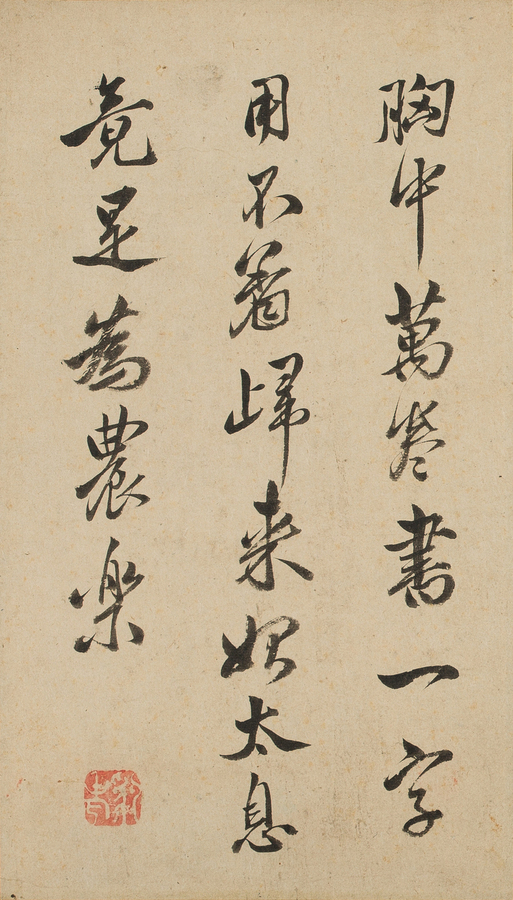 胸中萬卷書一字
用不着歸来始太息
竟是為農樂